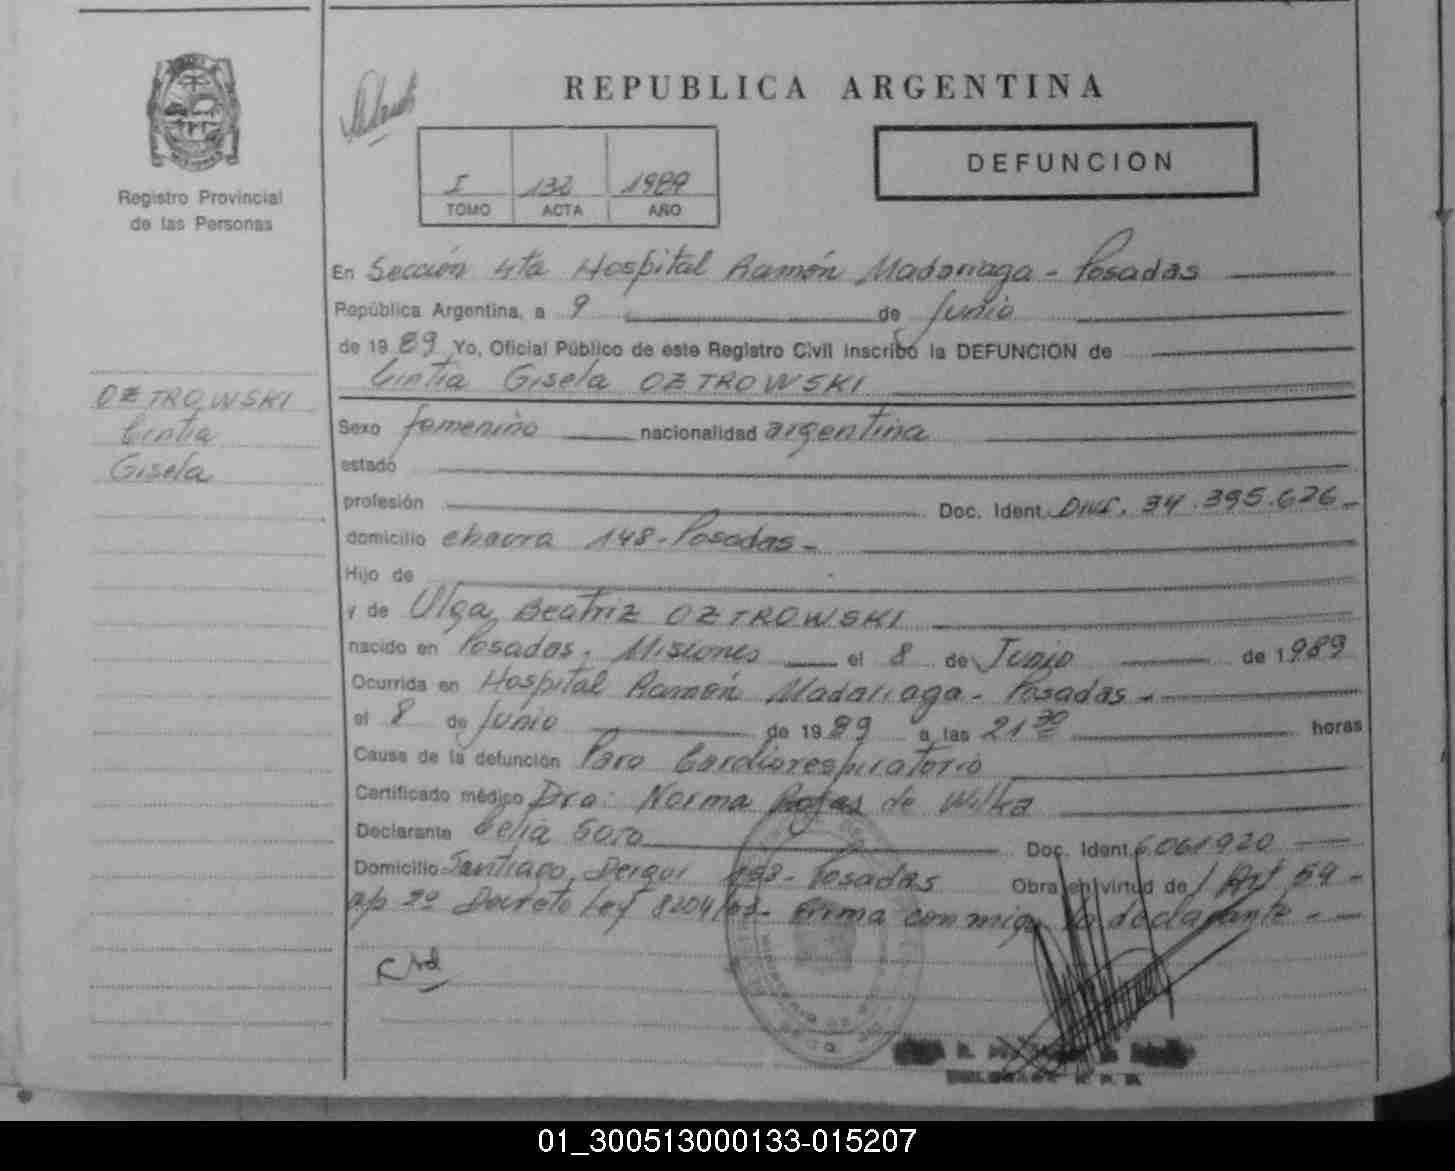 REPUBLICA ARGENTINA
Registro Provincial
de las Personas
I 132 1989
TOMO ACTA AÑO
DEFUNCION
OZTROWSKI
Cintia
Gisela
En Sección 4ta Hospital Ramón Madariaga - Posadas
República Argentina, a 9 de Junio
de 1989 Yo, Oficial Público de este Registro Civil inscribo la DEFUNCION de
Cintia Gisela OZTROWSKI
Sexo femenino nacionalidad argentina
estado
profesión Doc. Ident. 34.395.626-
domicilio 148-Posadas-
Hijo de
y de Olga Beatriz OZTROWSKI
nacido en Posadas. Misiones el 8 de Junio de 1989
Ocurrida en Hospital Ramón Madariaga - Posadas-
el 8 de Junio de 1989 a las 21 30 horas
Causa de la defunción Paro Cardiorespiratorio
Certificado médico Dra: Norma Rojas de Wilka
Declarante Celia Soto Doc. Ident. 6061920
Domicilio Santiago Derqui - Posadas Obra en virtud de Art 59-
Decreto Ley 8204/63- Firma conmigo la declarante-
01_300513000133-015207